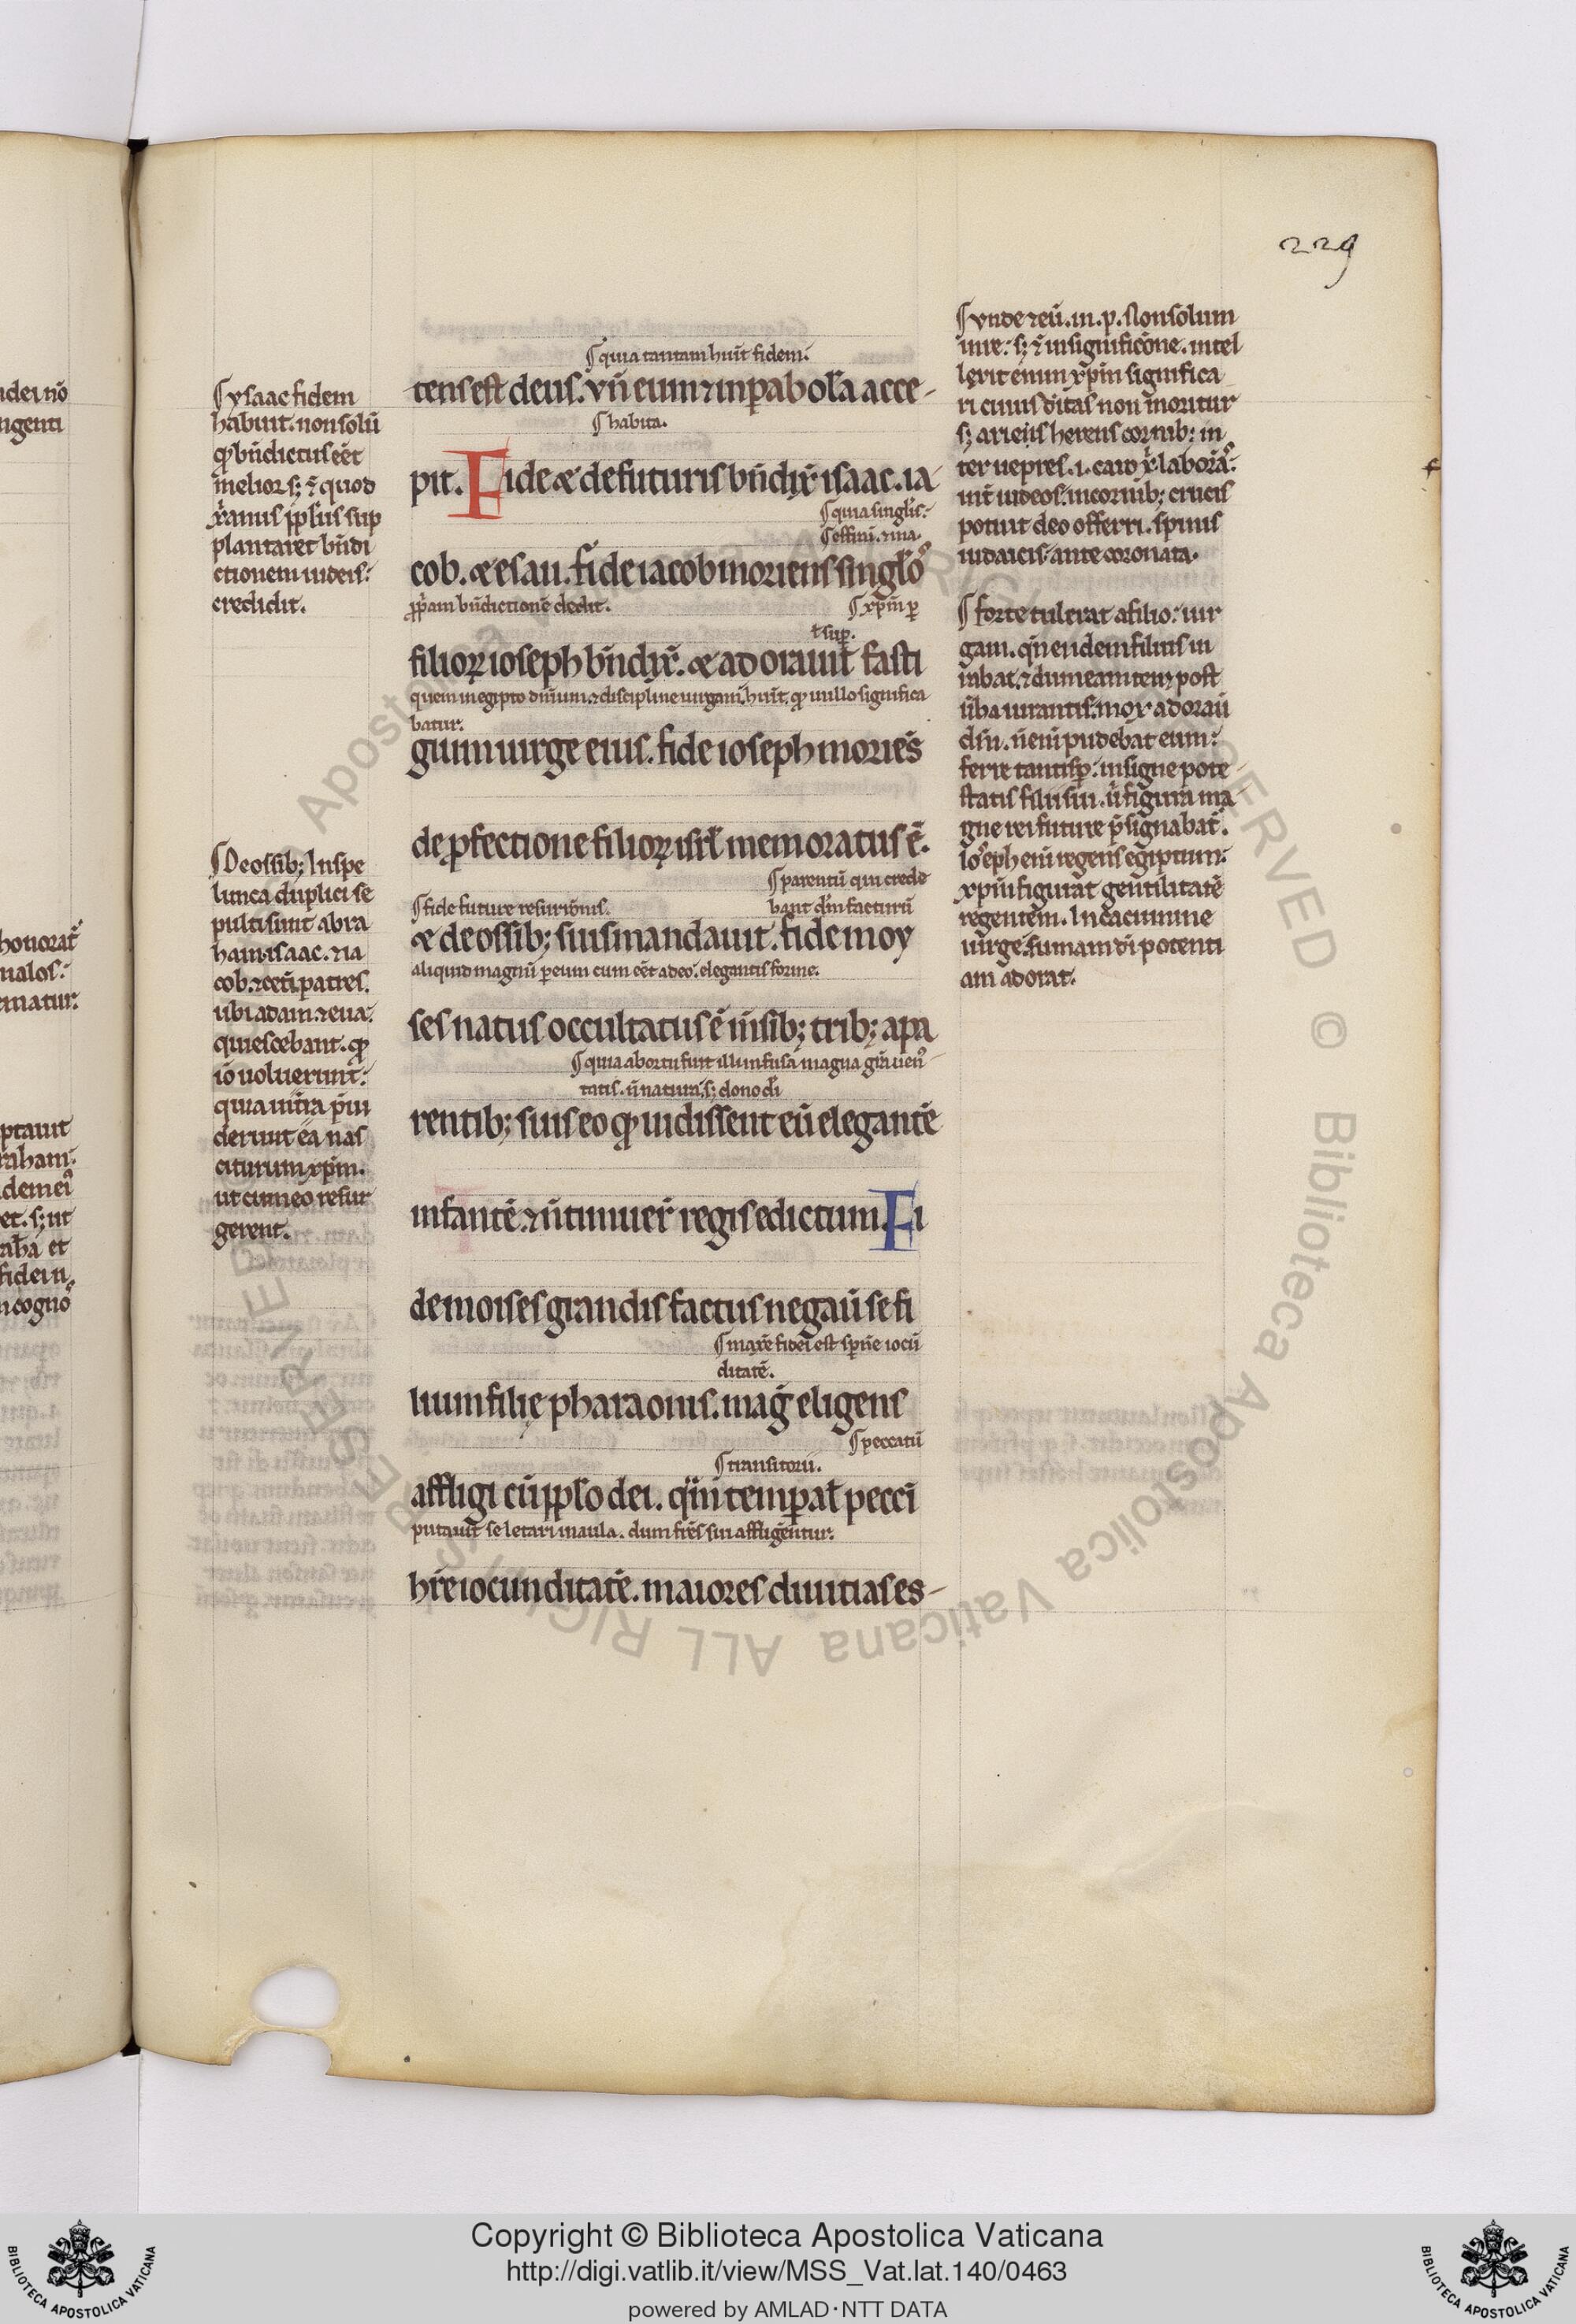 229
idei nō
ngenti
honorat᷑
malos:
ematur:
ptauit
raham.
demei᷒
et. s; ut
rabā et
fidem,
ncogno᷒
¶ ysaac fidem
habuit. nonsolū
ꝙ bn̄dictus eēt
melior s; ⁊ quod
xr̄anus pp̄lus sup
plantaret bn̄di
ctionem iudeis:
credidit.
¶ De ossib; In spe
lunca duplici se
pulti sunt abra
ham. isaac. ⁊ ia
cob. ⁊ cet̄i patres.
ubi adam ⁊ eua:
quiescebant. ꝙ
iō uoluerunt:
quia int̄ra p̄ui
derunt ea nas
citurum xp̄m.
ut cum eo resur
gerent.
¶ quia tantam hūit fidem.
tens est deus. vn̄ eum ⁊ inꝑabola acce-
¶ habita.
pit. Fide & de futuris bn̄dix̄ isaac. ia-
¶ quia singl̄is:
¶ effrim. ⁊ ma.
cob. & esau. fide iacob moriens singl̄o᷒
ꝓp̄am bn̄dictionē dedit.
¶ xp̄m ꝑ
ł suꝑ.
filioꝝ ioseph bn̄dix̄. & adorauit fasti
quem in egipto dn̄ium ⁊ discipline uirgam hūit. ꝙ in illo significa
batur:
gium uirge eius. fide ioseph moriēs
de ꝓfectione filioꝝ isrł memoratus ē.
¶ parentū qui crede
bant dm̄ facturū
¶ fide future resuriōnis.
& de ossib; suis mandauit. fide moy
aliquid magnū ꝑ eum cum eēt adeo. elegantis forme.
ses natus occultatus ē m̄sib; trib; apa
¶ quia ab ortu fuit illi infusa magna grā uen᷒-
tatis. n̄ natura. s; dono dī
rentib; suis eo ꝙ uidissent eū elegantē
infantē. ⁊ n̄ timuer̄ regis edictum. Fi
de moises grandis factus negaū se fi
¶ maxīe fidei est sꝑn̄e iocū
ditatē.
lium filię pharaonis. maḡ eligens
¶ peccatū
¶ transitorii.
affligi cū pp̄lo dei. qͣm temꝑał pecci
putauit se letari in aula. dum frēs sui affligentur.
hr̄e iocunditatē. maiores diuitias es-
¶ vnde ⁊ eū. in. p. Non solum
in re: s; ⁊ in significōne. intel
lexit enim xp̄m significa
ri cuius dītas non moritur
s; arietis herens cornib: in
ter uepres .i. caro xp̄i laborā:
int̄ iudeos. in cornib; crucis
potuit deo offerri. spinis
iudaicis: ante coronata.
¶ forte tulerat a filio: uir
gam. qn̄ eidem filius iu
rabat. ⁊ dum eam tenꝫ post
ūba iurantis. mox adoraū
dm̄. n̄ enī pudebat eum:
ferre tantisꝑ: insigne pote
statis filii sui. ū figura ma
gne rei future p̄signabat̄.
Ioseph enī regens egiptum:
xp̄m figurāt gentilitatē
regentem. In cacumine
uirge. sumam dī potenti
am adorat.
Copyright © Biblioteca Apostolica Vaticana
http://digi.vatlib.it/view/MSS_Vat.lat.140/0463
powered by AMLAD·NTT DATA
BIBLIOTECA APOSTOLICA VATICANA
BIBLIOTECA APOSTOLICA VATICANA